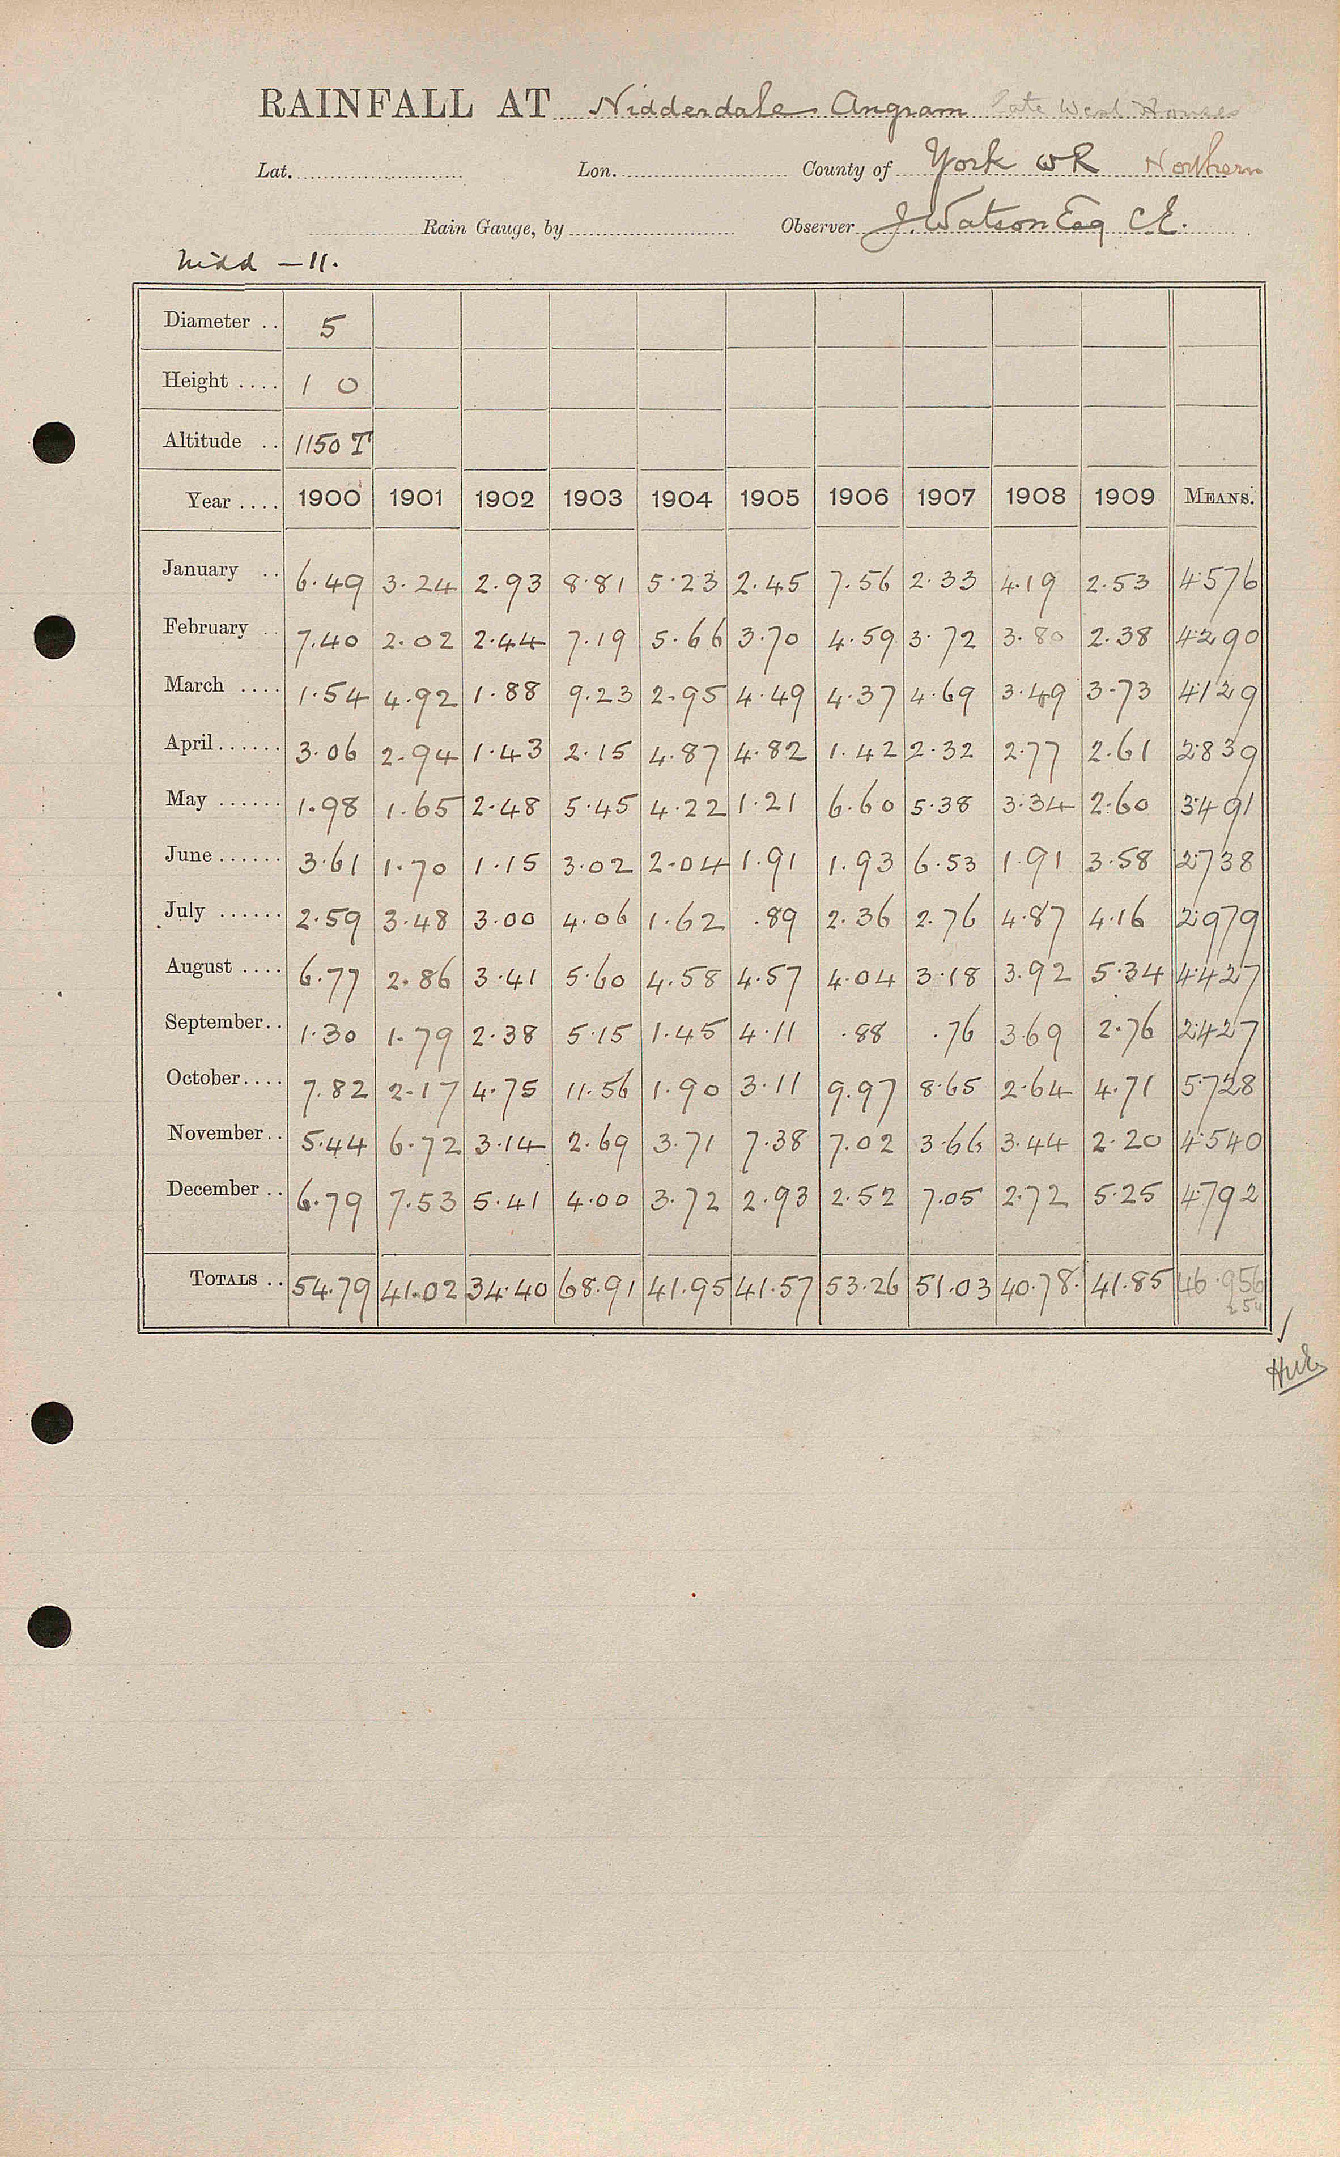 RAINFALL AT Nidderdale Angram late West Houses
Lat. Lon. County of York WR Northern
Rain Gauge, by Observer J. Watson Esq C.E.
Nidd - 11.
Diameter .. 5
Height .... 1 0
Altitude .. 1150 T
Year .... 1900 1901 1902 1903 1904 1905 1906 1907 1908 1909 MEANS.
January .. 6.49 3.24 2.93 8.81 5.23 2.45 7.56 2.33 4.19 2.53 4.576
February .. 7.40 2.02 2.44 7.19 5.66 3.70 4.59 3.72 3.80 2.38 4.290
March .... 1.54 4.92 1.88 9.23 2.95 4.49 4.37 4.69 3.49 3.73 4.129
April ...... 3.06 2.94 1.43 2.15 4.87 4.82 1.42 2.32 2.77 2.61 2.839
May ...... 1.98 1.65 2.48 5.45 4.22 1.21 6.60 5.38 3.34 2.60 3.491
June ...... 3.61 1.70 1.15 3.02 2.04 1.91 1.93 6.53 1.91 3.58 2.738
July ...... 2.59 3.48 3.00 4.06 1.62 .89 2.36 2.76 4.87 4.16 2.979
August .... 6.77 2.86 3.41 5.60 4.58 4.57 4.04 3.18 3.92 5.34 4.427
September .. 1.30 1.79 2.38 5.15 1.45 4.11 .88 .76 3.69 2.76 2.427
October .... 7.82 2.17 4.75 11.56 1.90 3.11 9.97 8.65 2.64 4.71 5.728
November .. 5.44 6.72 3.14 2.69 3.71 7.38 7.02 3.66 3.44 2.20 4.540
December .. 6.79 7.53 5.41 4.00 3.72 2.93 2.52 7.05 2.72 5.25 4.792
TOTALS .. 54.79 41.02 34.40 68.91 41.95 41.57 53.26 51.03 40.78 41.85 46.956